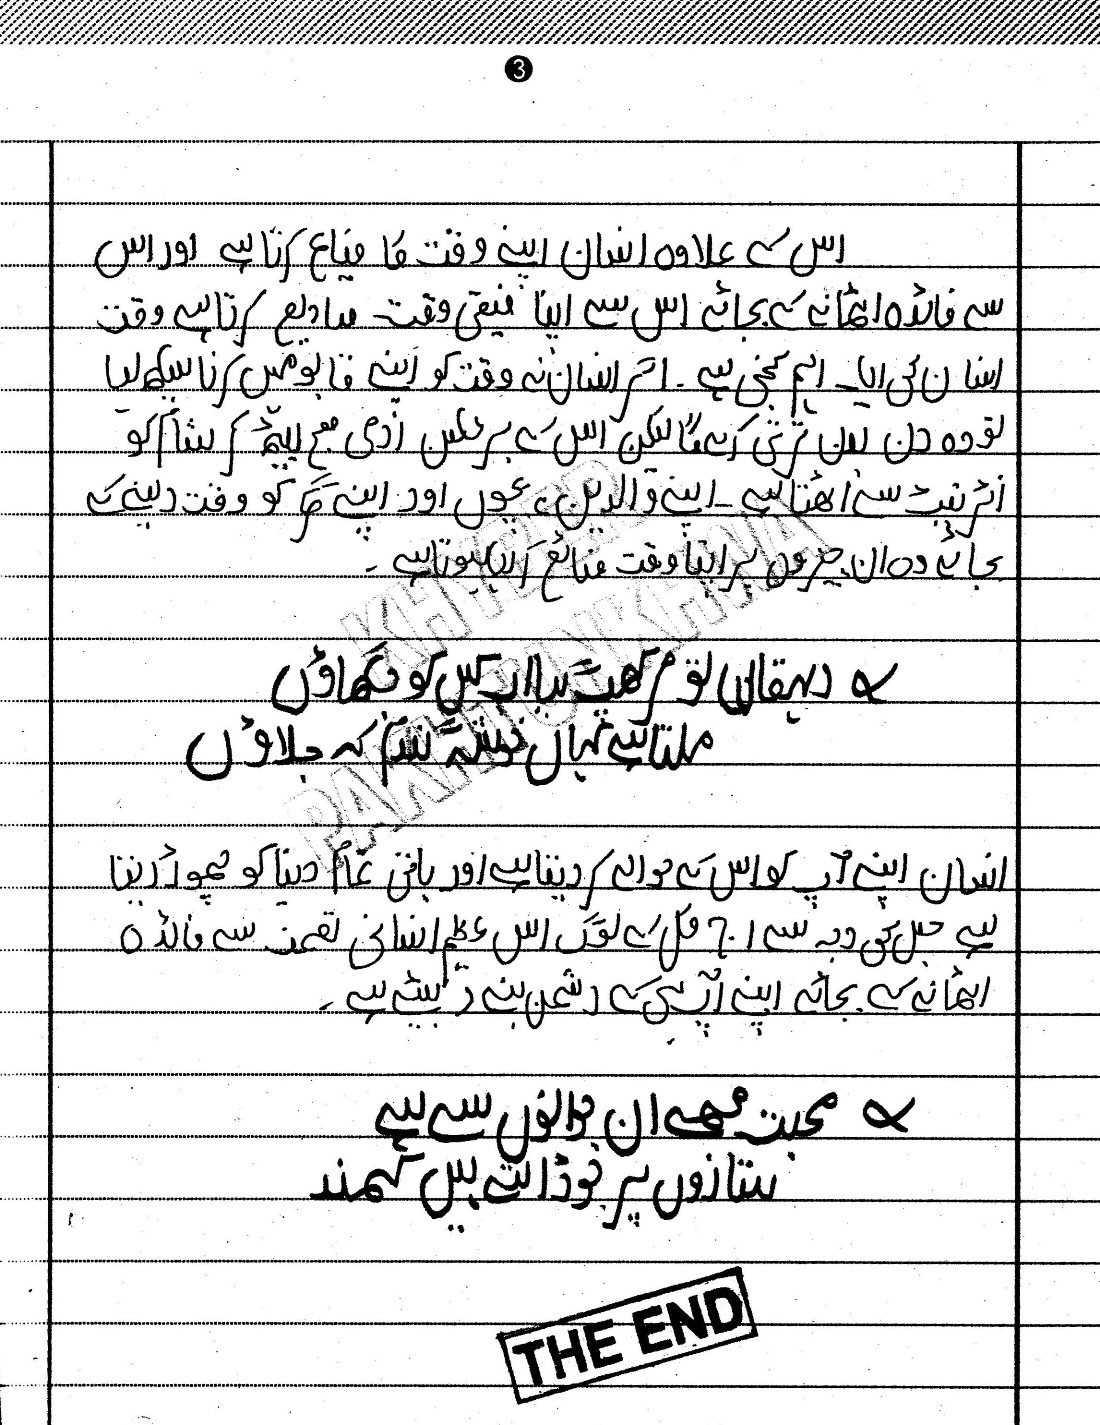 3
اس کے علاوہ انسان اپنے وقت کا ضیاع کرتا ہے اور اس
سے فائدہ اٹھانے کے بجائے اس سے اپنا قیمتی وقت ضائع کرتا ہے وقت
انسان کی ایک اہم کنجی ہے ۔ اگر انسان نے وقت کو اپنے قابو میں کرنا سیکھ لیا
تو وہ دن دن ترقی کرے گا لیکن اس کے برعکس آدمی صبح بیٹھ کر شام کو
انٹرنیٹ سے اٹھتا ہے ۔ اپنے والدین، بچوں اور اپنے گھر کو وقت دینے کے
بجائے وہ ان چیزوں پر اپنا وقت ضائع کر رہا ہوتا ہے ۔
دہقان تو مر کھپ گیا اب کس کو جگاؤں
ملتا ہے کہاں خوشہ گندم کہ جلاؤں
انسان اپنے آپ کو اس کے حوالے کر دیتا ہے اور باقی تمام دنیا کو چھوڑ دیتا
ہے جس کی وجہ سے آج کل کے لوگ اس عظیم انسانی نعمت سے فائدہ
اٹھانے کے بجائے اپنے آپ ہی کے دشمن بنے بیٹھے ہے ۔
محبت مجھے ان جوانوں سے ہے
ستاروں پر جو ڈالتے ہیں کمند
KHYBER
PAKHTUNKHWA
THE END